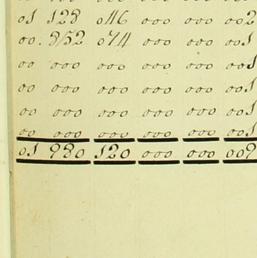 01 128 046 000 000 002
00. 852 074 000 000 001
00 000 000 000 000 001
00 000 000 000 000 001
00 000 000 000 000 001
00 000 000 000 000 001
01 980 120 000 000 009